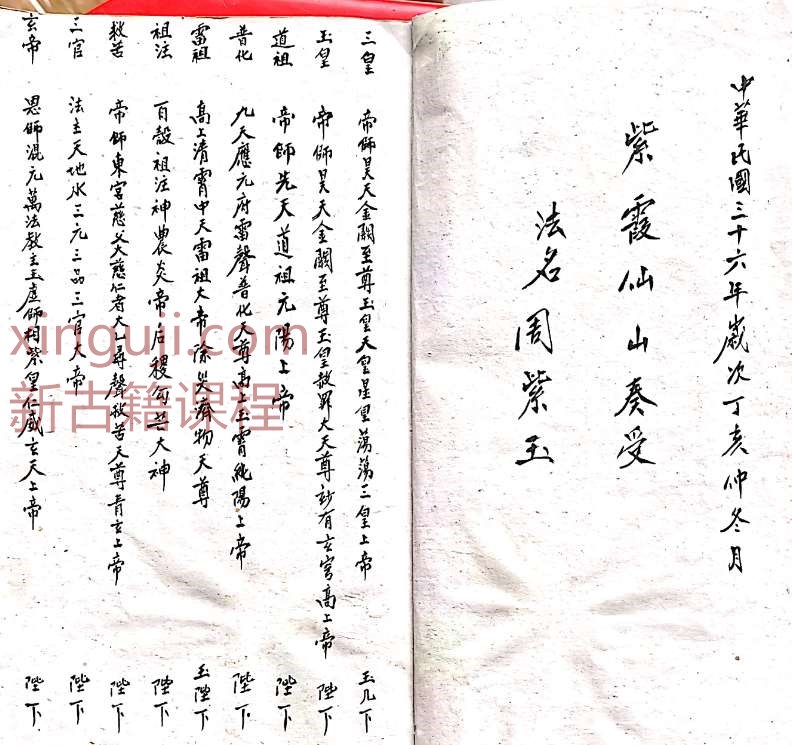 中華民國三十六年歲次丁亥仲冬月
紫霞仙山奏受
法名周紫玉
三皇 帝師昊天金闕至尊玉皇天皇星皇蕩蕩三皇上帝 玉几下
玉皇 帝師昊天金闕至尊玉皇赦罪大天尊妙有玄穹高上帝 陛下
道祖 帝師先天道祖元陽上帝 陛下
普化 九天應元府雷聲普化天尊高上玉霄純陽上帝 陛下
雷祖 高上清霄中天雷祖大帝除災濟物天尊 玉陛下
祖注 百穀祖注神農炎帝后稷勾芒大神 陛下
救苦 帝師東宮慈父大慈仁者太乙尋聲救苦天尊青玄上帝 陛下
三官 法主天地水三元三品三官大帝 陛下
玄帝 恩師混元萬法教主玉虛師相紫皇仁威玄天上帝 陛下
xinguji.com
新古籍课程